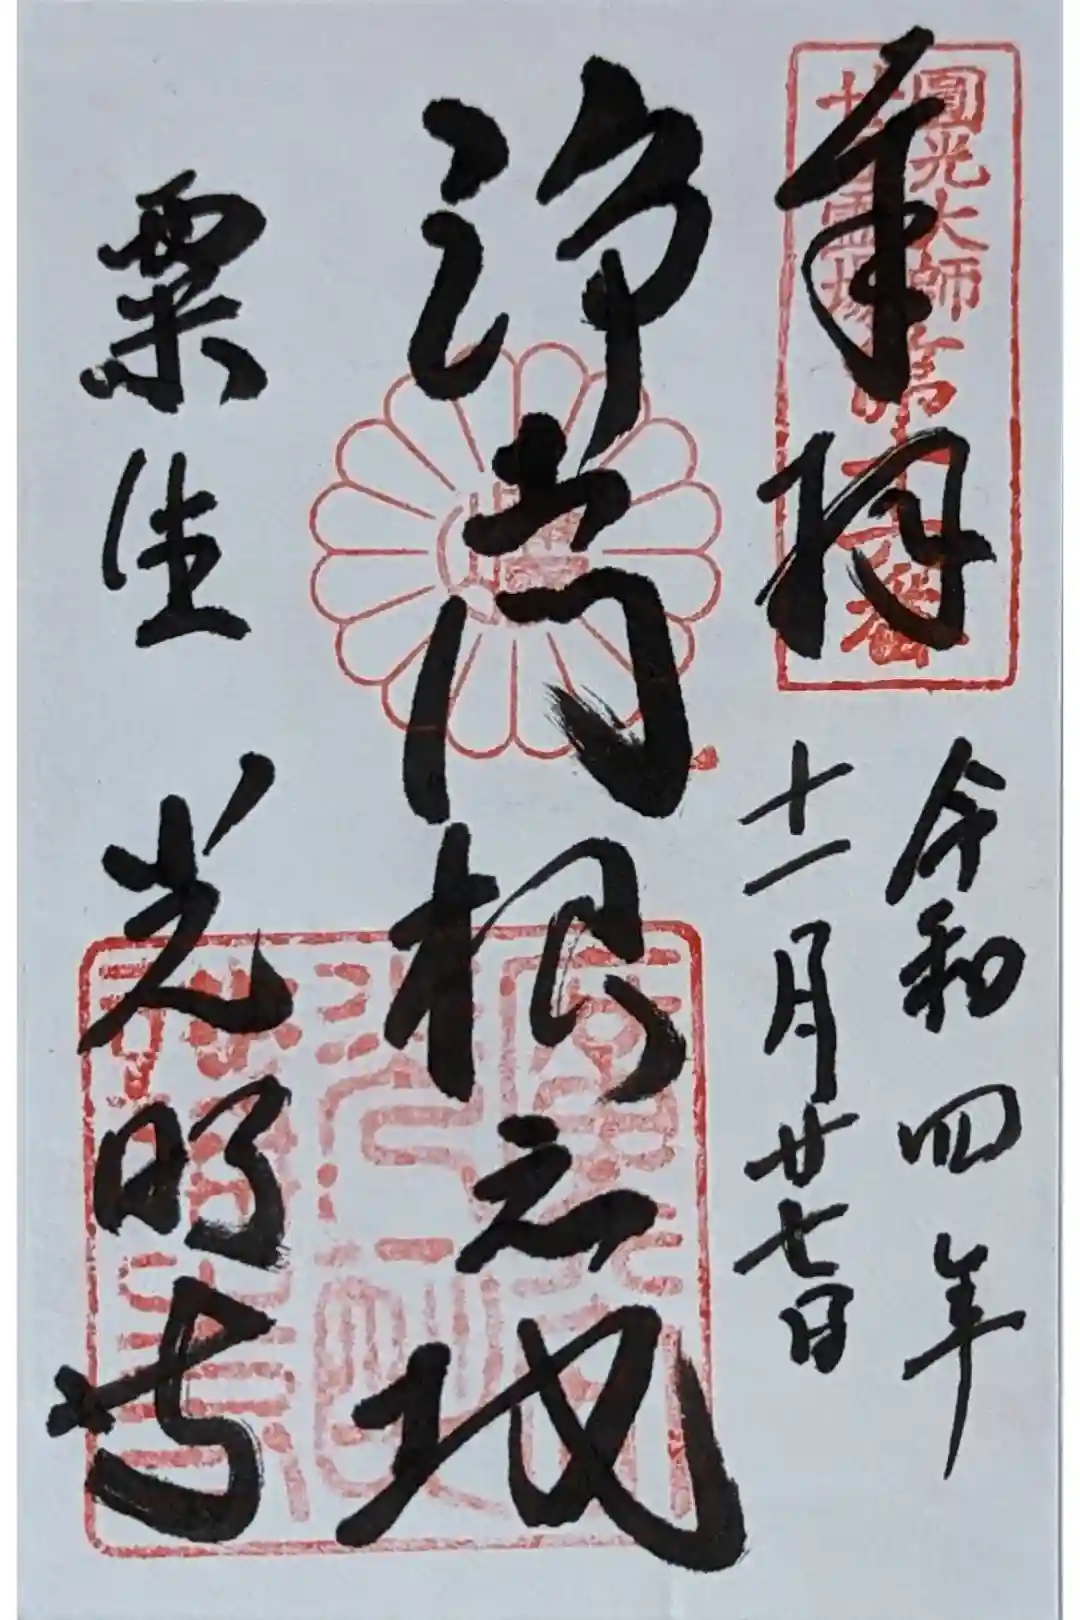 圓光大師
霊場
第十六番
奉拝
令和四年
十一月廿七日
浄土門根元地
粟生
光明寺